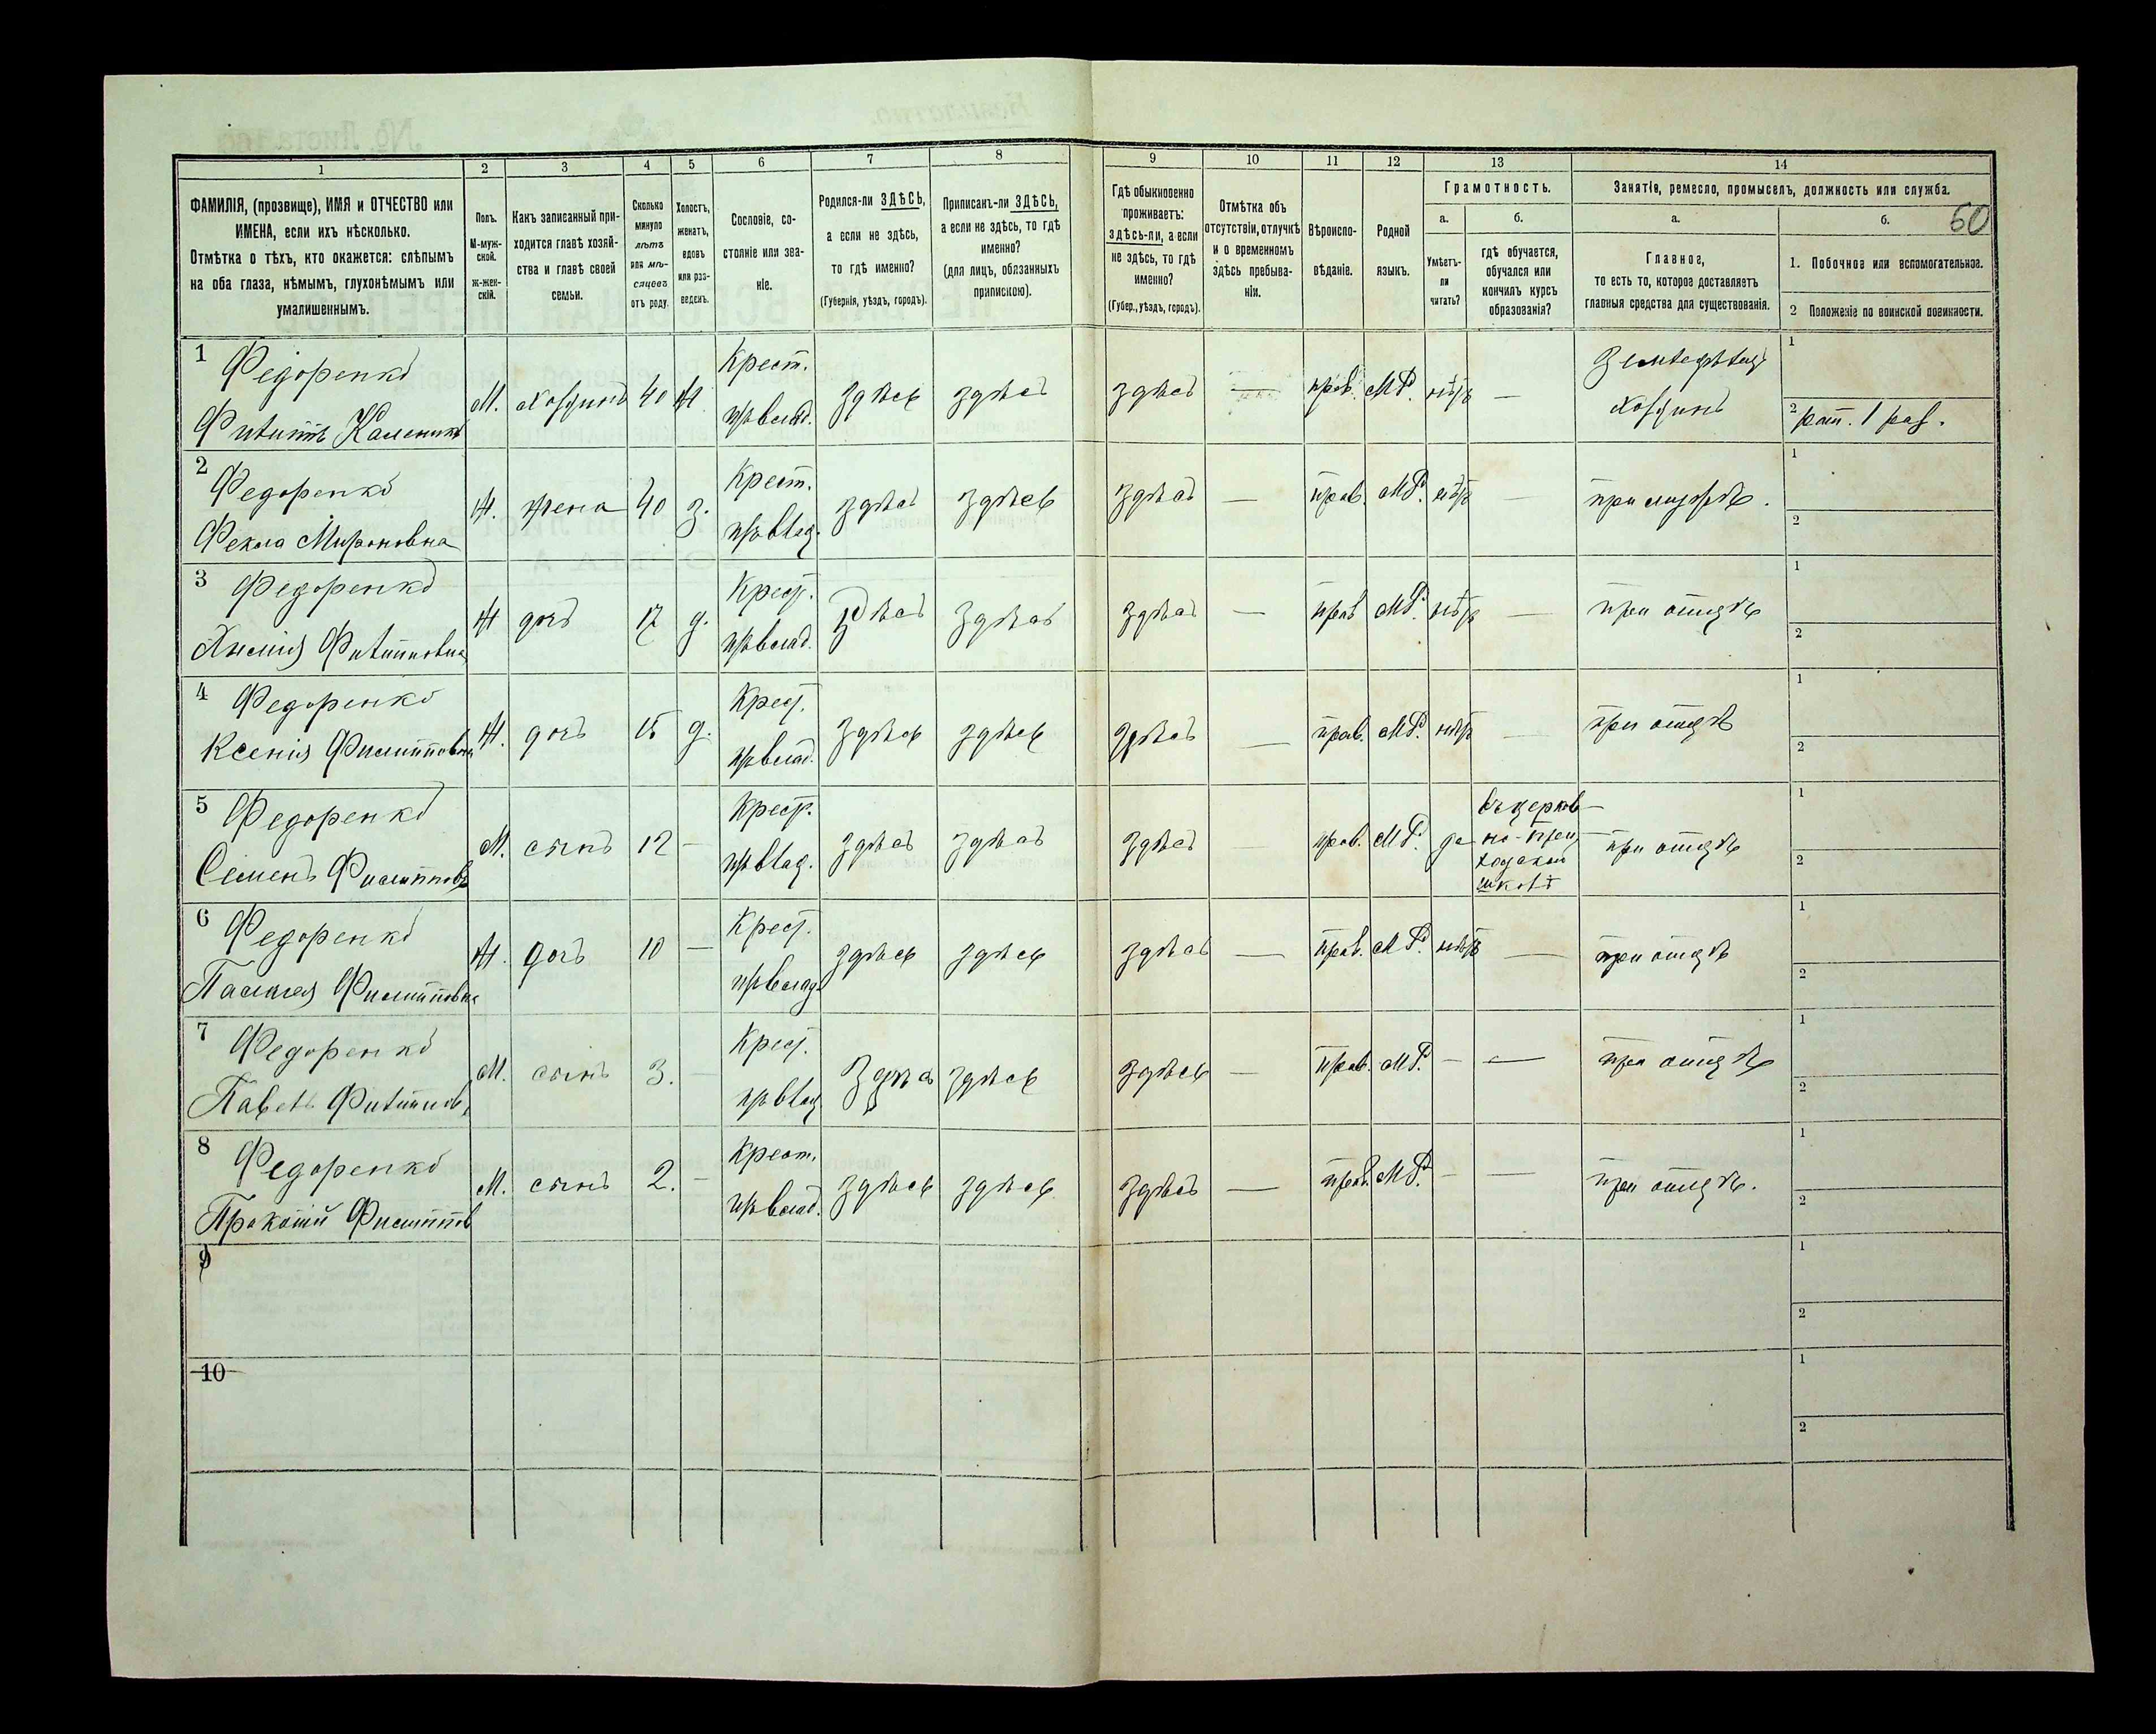 1
2
3
4
5
6
7
8
9
10
11
12
13
14
ФАМИЛІЯ, (прозвище), ИМЯ и ОТЧЕСТВО или
ИМЕНА, если ихъ нѣсколько.
Отмѣтка о тѣхъ, кто окажется: слѣпымъ
на оба глаза, нѣмымъ, глухонѣмымъ или
умалишеннымъ.
Полъ.
М-муж-
ской.
ж-жен-
скій.
Какъ записанный при-
ходится главѣ хозяй-
ства и главѣ своей
семьи.
Сколько
минуло
лѣтъ
или мѣ-
сяцевъ
отъ роду.
Холостъ,
женатъ,
вдовъ
или раз-
веденъ.
Сословіе, со-
стояніе или зва-
ніе.
Родился-ли ЗДѢСЬ,
а если не здѣсь,
то гдѣ именно?
(Губернія, уѣздъ, городъ).
Приписанъ-ли ЗДѢСЬ,
а если не здѣсь, то гдѣ
именно?
(для лицъ, обязанныхъ
припискою).
Гдѣ обыкновенно
проживаетъ:
здѣсь-ли, а если
не здѣсь, то гдѣ
именно?
(Губер., уѣздъ, городъ).
Отмѣтка объ
отсутствіи, отлучкѣ
и о временномъ
здѣсь пребыва-
ніи.
Вѣроиспо-
вѣданіе.
Родной
языкъ.
Грамотность.
а.
Умѣетъ-
ли
читать?
б.
гдѣ обучается,
обучался или
кончилъ курсъ
образованія?
Занятіе, ремесло, промыселъ, должность или служба.
а.
Главное,
то есть то, которое доставляетъ
главныя средства для существованія.
б.
60
1. Побочное или вспомогательное.
2 Положеніе по воинской повинности.
1 Федоренко
Филиппъ Каленик
М. хозяинъ 40 Ж Крест.
пр влад. здѣсь здѣсь здѣсь — прав. МР. нѣтъ — Земледѣлец
хозяинъ
1
2 рат. 1 раз.
2 Федоренко
Фекла Мироновна
Ж. жена 40 з. Крест.
пр влад. здѣсь здѣсь здѣсь — прав. МР. нѣтъ — при мужѣ.
1
2
3 Федоренко
Филипповна
Ж дочь 17 д. Крест.
пр влад. здѣсь здѣсь здѣсь — прав МР. нѣтъ — при отцѣ
1
2
4 Федоренко
Ксенія Филипповна
Ж. дочь 15 д. Крест.
пр влад. здѣсь здѣсь здѣсь — прав. МР. нѣтъ — при отцѣ
1
2
5 Федоренко
Семенъ Филиппов
М. сынъ 12 — Крест.
пр влад. здѣсь здѣсь здѣсь — прав. МР. да въ церков-
но-при-
ходской
школѣ
при отцѣ
1
2
6 Федоренко
Палагея Филипповна
Ж. дочь 10 — Крест.
пр влад. здѣсь здѣсь здѣсь — прав. МР. нѣтъ — при отцѣ
1
2
7 Федоренко
Павелъ Филиппов
М. сынъ 3. — Крест.
пр влад здѣсь здѣсь здѣсь — прав. МР. — — при отцѣ
1
2
8 Федоренко
Прокопій Филиппов
М. сынъ 2. — Крест.
пр влад. здѣсь здѣсь здѣсь — прав. МР. — — при отцѣ.
1
2
9
1
2
10
1
2